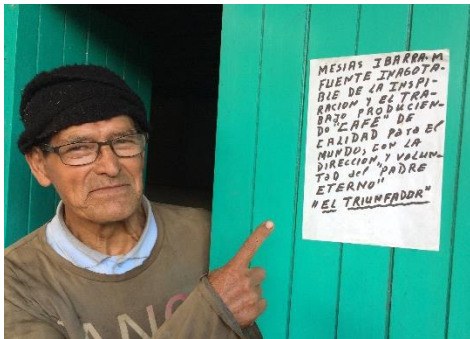 MESIAS IBARRA.M
FUENTE INAGOTA-
BLE DE LA INSPI-
RACION Y EL TRA-
BAJO PRODUCIEN-
DO "CAFE" DE
CALIDAD PARA EL
MUNDO, CON LA
DIRECCION, Y VOLUN-
TAD del "PADRE
ETERNO"
"EL TRIUNFADOR"